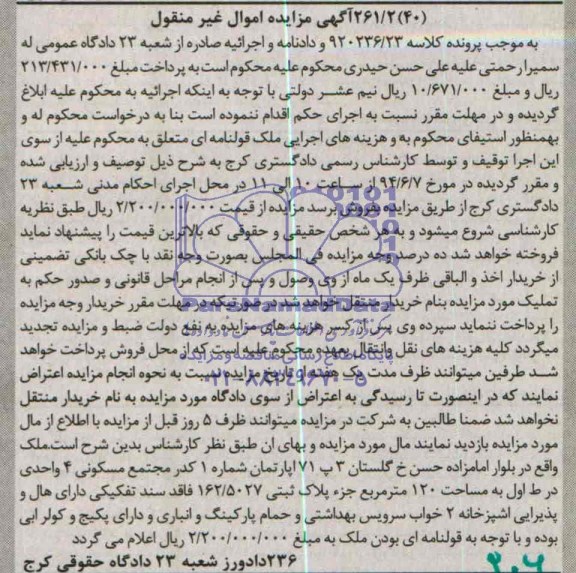 (۴۰)۲۶۱/۲آگهی مزایده اموال غیر منقول
به موجب پرونده کلاسه ۹۲۰۲۳۶/۲۳ و دادنامه و اجرائیه صادره از شعبه ۲۳ دادگاه عمومی له
سمیرا رحمتی علیه علی حسن حیدری محکوم علیه محکوم است به پرداخت مبلغ ۲۱۳/۴۳۱/۰۰۰
ریال و مبلغ ۱۰/۶۷۱/۰۰۰ ریال نیم عشر دولتی با توجه به اینکه اجرائیه به محکوم علیه ابلاغ
گردیده و در مهلت مقرر نسبت به اجرای حکم اقدام ننموده است بنا به درخواست محکوم له و
بهمنظور استیفای محکوم به و هزینه های اجرایی ملک قولنامه ای متعلق به محکوم علیه از سوی
این اجرا توقیف و توسط کارشناس رسمی دادگستری کرج به شرح ذیل توصیف و ارزیابی شده
و مقرر گردیده در مورخ ۹۴/۶/۷ از ساعت ۱۰ الی ۱۱ در محل اجرای احکام مدنی شعبه ۲۳
دادگستری کرج از طریق مزایده بفروش برسد مزایده از قیمت ۲/۲۰۰/۰۰۰/۰۰۰ ریال طبق نظریه
کارشناسی شروع میشود و به هر شخص حقیقی و حقوقی که بالاترین قیمت را پیشنهاد نماید
فروخته خواهد شد ده درصد وجه مزایده فی المجلس بصورت وجه نقد با چک بانکی تضمینی
از خریدار اخذ و الباقی ظرف یک ماه از وی وصول و پس از انجام مراحل قانونی و صدور حکم به
تملیک مورد مزایده بنام خریدار منتقل خواهد شد در صورتیکه در مهلت مقرر خریدار وجه مزایده
را پرداخت ننماید سپرده وی پس از کسر هزینه های مزایده به نفع دولت ضبط و مزایده تجدید
میگردد کلیه هزینه های نقل وانتقال بعهده محکوم علیه است که از محل فروش پرداخت خواهد
شد طرفین میتوانند ظرف مدت یک هفته از تاریخ مزایده نسبت به نحوه انجام مزایده اعتراض
نمایند که در اینصورت تا رسیدگی به اعتراض از سوی دادگاه مورد مزایده به نام خریدار منتقل
نخواهد شد ضمنا طالبین به شرکت در مزایده میتوانند ظرف ۵ روز قبل از مزایده با اطلاع از مال
مورد مزایده بازدید نمایند مال مورد مزایده و بهای ان طبق نظر کارشناس بدین شرح است.ملک
واقع در بلوار امامزاده حسن خ گلستان ۳ پ ۷۱ اپارتمان شماره ۱ کدر مجتمع مسکونی ۴ واحدی
در ط اول به مساحت ۱۲۰ مترمربع جزء پلاک ثبتی ۱۶۲/۵۰۲۷ فاقد سند تفکیکی دارای هال و
پذیرایی اشپزخانه ۲ خواب سرویس بهداشتی و حمام پارکینگ و انباری و دارای پکیج و کولر ابی
بوده و با توجه به قولنامه ای بودن ملک به مبلغ ۲/۲۰۰/۰۰۰/۰۰۰ ریال اعلام می گردد
۲۳۶دادورز شعبه ۲۳ دادگاه حقوقی کرج
۳۰۶
ParsNamadData
پایگاه اطلاع رسانی مناقصه و مزایده
۰۲۱-۸۸۳۴۹۶۷۰-۵